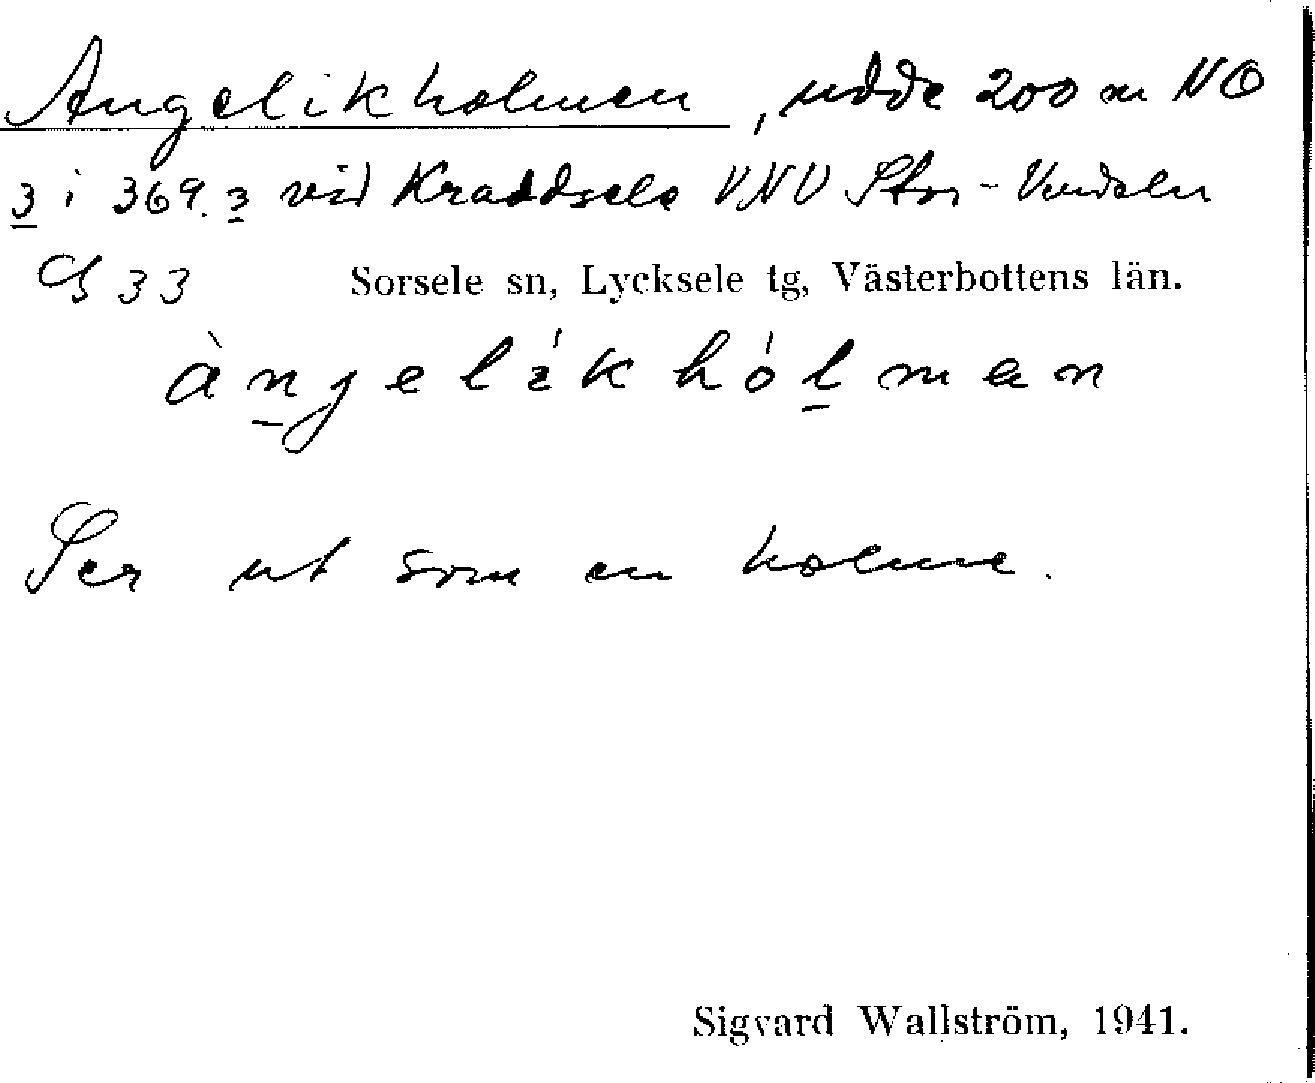 Angelikholmen, udde 200 m NO
3 i 369.3 vid Kraddsele VNV Stor-Vindeln
CJ 33 Sorsele sn, Lycksele tg, Västerbottens län.
àngelíkhólman
Ser ut som en holme.
Sigvard Wallström, 1941.